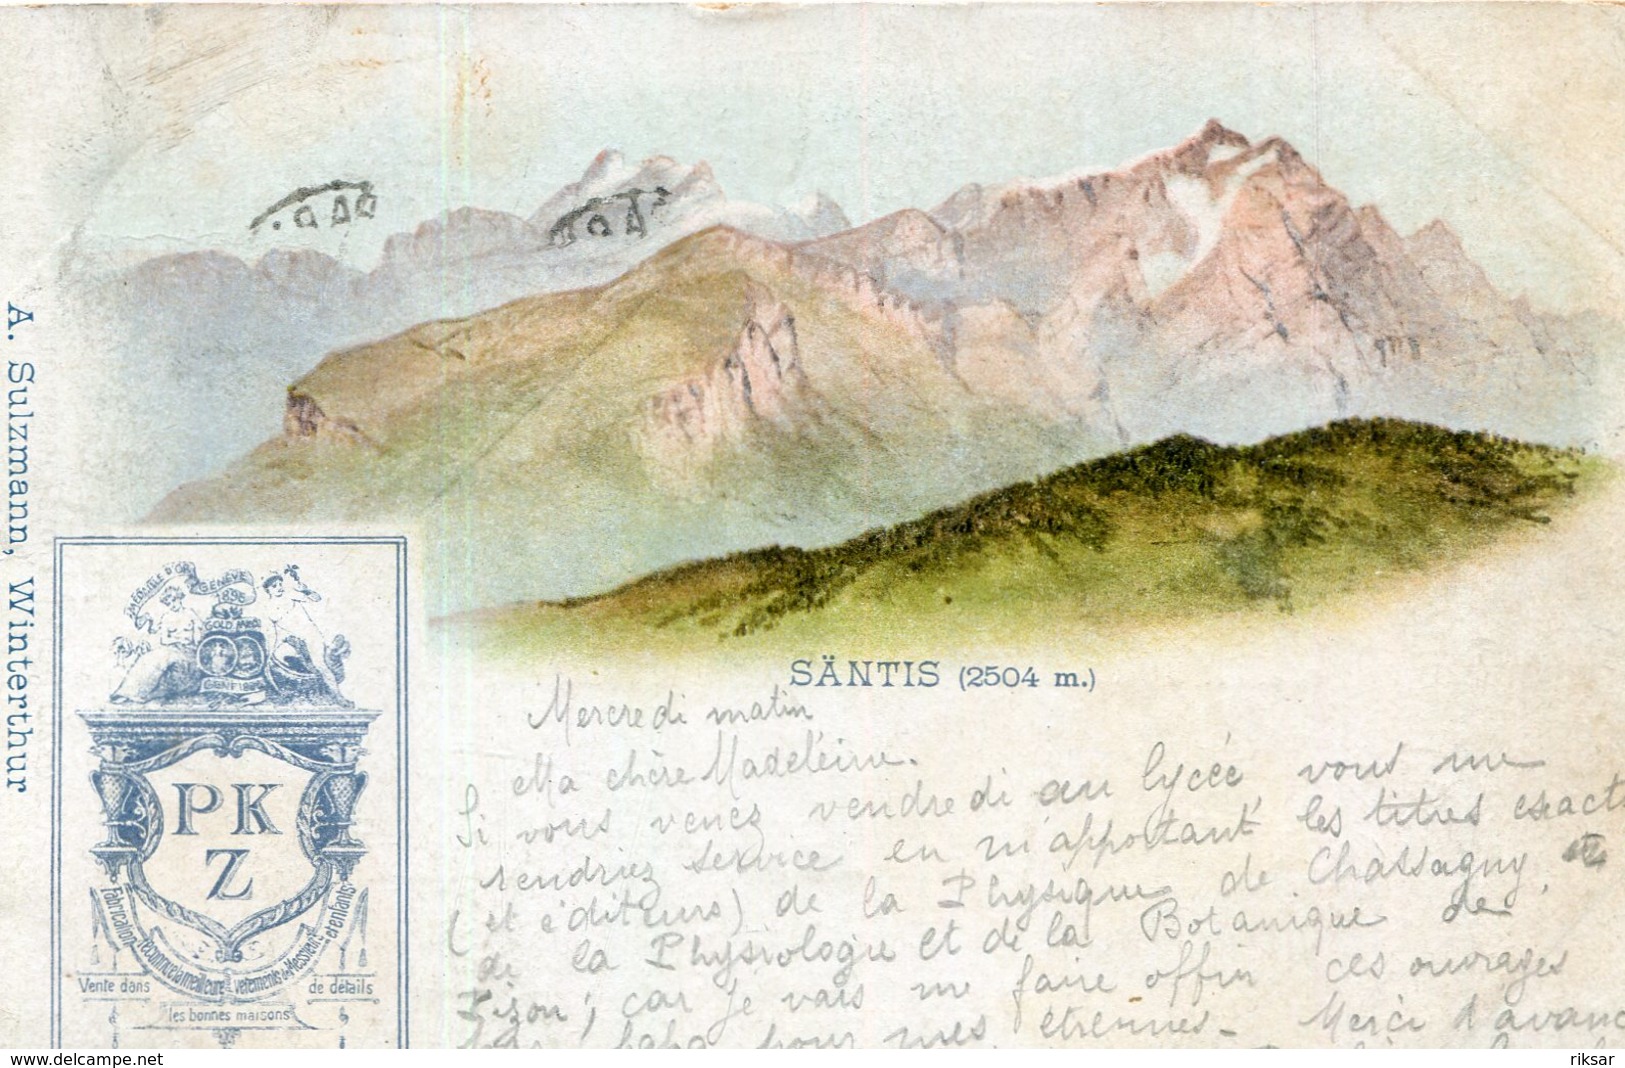 A. Sulzmann, Winterthur
MÉDAILLE D'OR
GENÈVE
1896
GOLD
PK
Z
Fabrication reconnue la meilleure de vêtements de Messieurs et enfants
Vente dans
de détails
les bonnes maisons
SÄNTIS (2504 m.)
Mercredi matin
Ma chère Madeleine.
Si vous venez vendredi au lycée vous me
rendriez service en m'apportant les titres exacts
(et éditeurs) de la Physique de Chassagny,
de la Physiologie et de la Botanique de
Pizon; car je vais me faire offrir ces ouvrages
par papa pour mes étrennes - Merci d'avance
delcampe.net
riksar